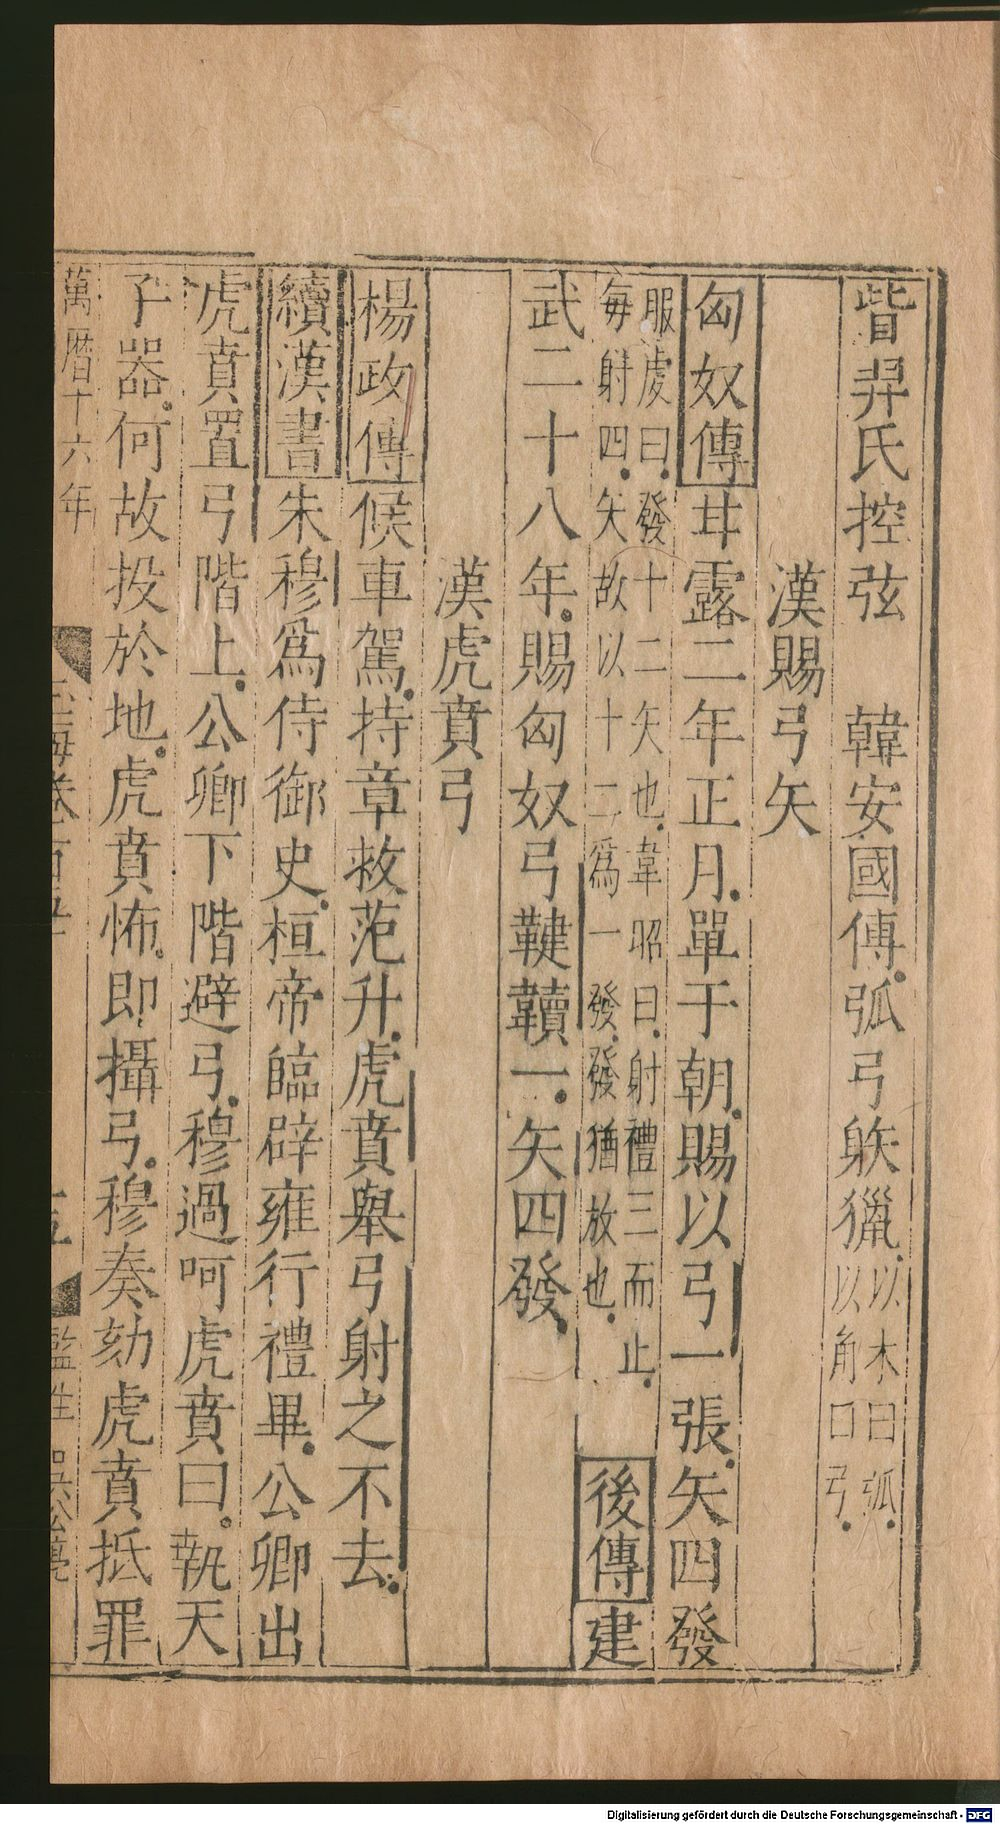 皆羿氏控弦　韓安國傳。弧弓躲獵。以木曰弧。以角曰弓。
漢賜弓矢
匈奴傳甘露二年正月。單于朝。賜以弓一張。矢四發
服虔曰。發十二矢也。韋昭曰。射禮三而止。每射四。矢故以十二爲一發。發猶放也。後傳建
武二十八年。賜匈奴弓鞬韥一。矢四發。
漢虎賁弓
楊政傳候車駕。持章救范升。虎賁舉弓射之不去。
續漢書朱穆爲侍御史。桓帝臨辟雍行禮畢。公卿出
虎賁置弓階上。公卿下階避弓。穆過呵虎賁曰。執天
子器。何故投於地。虎賁怖。即攝弓。穆奏劾虎賁抵罪
萬曆十六年　玉海卷百五十　監生吳公亮
Digitalisierung gefördert durch die Deutsche Forschungsgemeinschaft - DFG